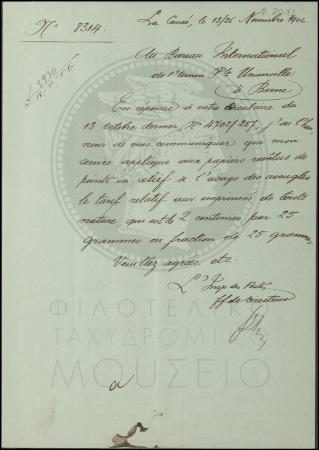 N° 8314
La Canée, le 13/26 Novembre 1906
Au Bureau International
de l'Union Ple Universelle
à Berne
En réponse à votre circulaire du
13 octobre dernier, N° 4702/257, j'ai l'hon
neur de vous communiquer que mon
service applique aux papiers revêtus de
points en relief à l'usage des aveugles
le tarif relatif aux imprimés de toute
nature qui est de 2 centimes par 25
grammes ou fraction de 25 grammes
Veuillez agréer etc.
L'Insp des Postes
ff de Directeur
ΦΙΛΟΤΕΛΙΚΟ
ΤΑΧΥΔΡΟΜΙΚΟ
ΜΟΥΣΕΙΟ